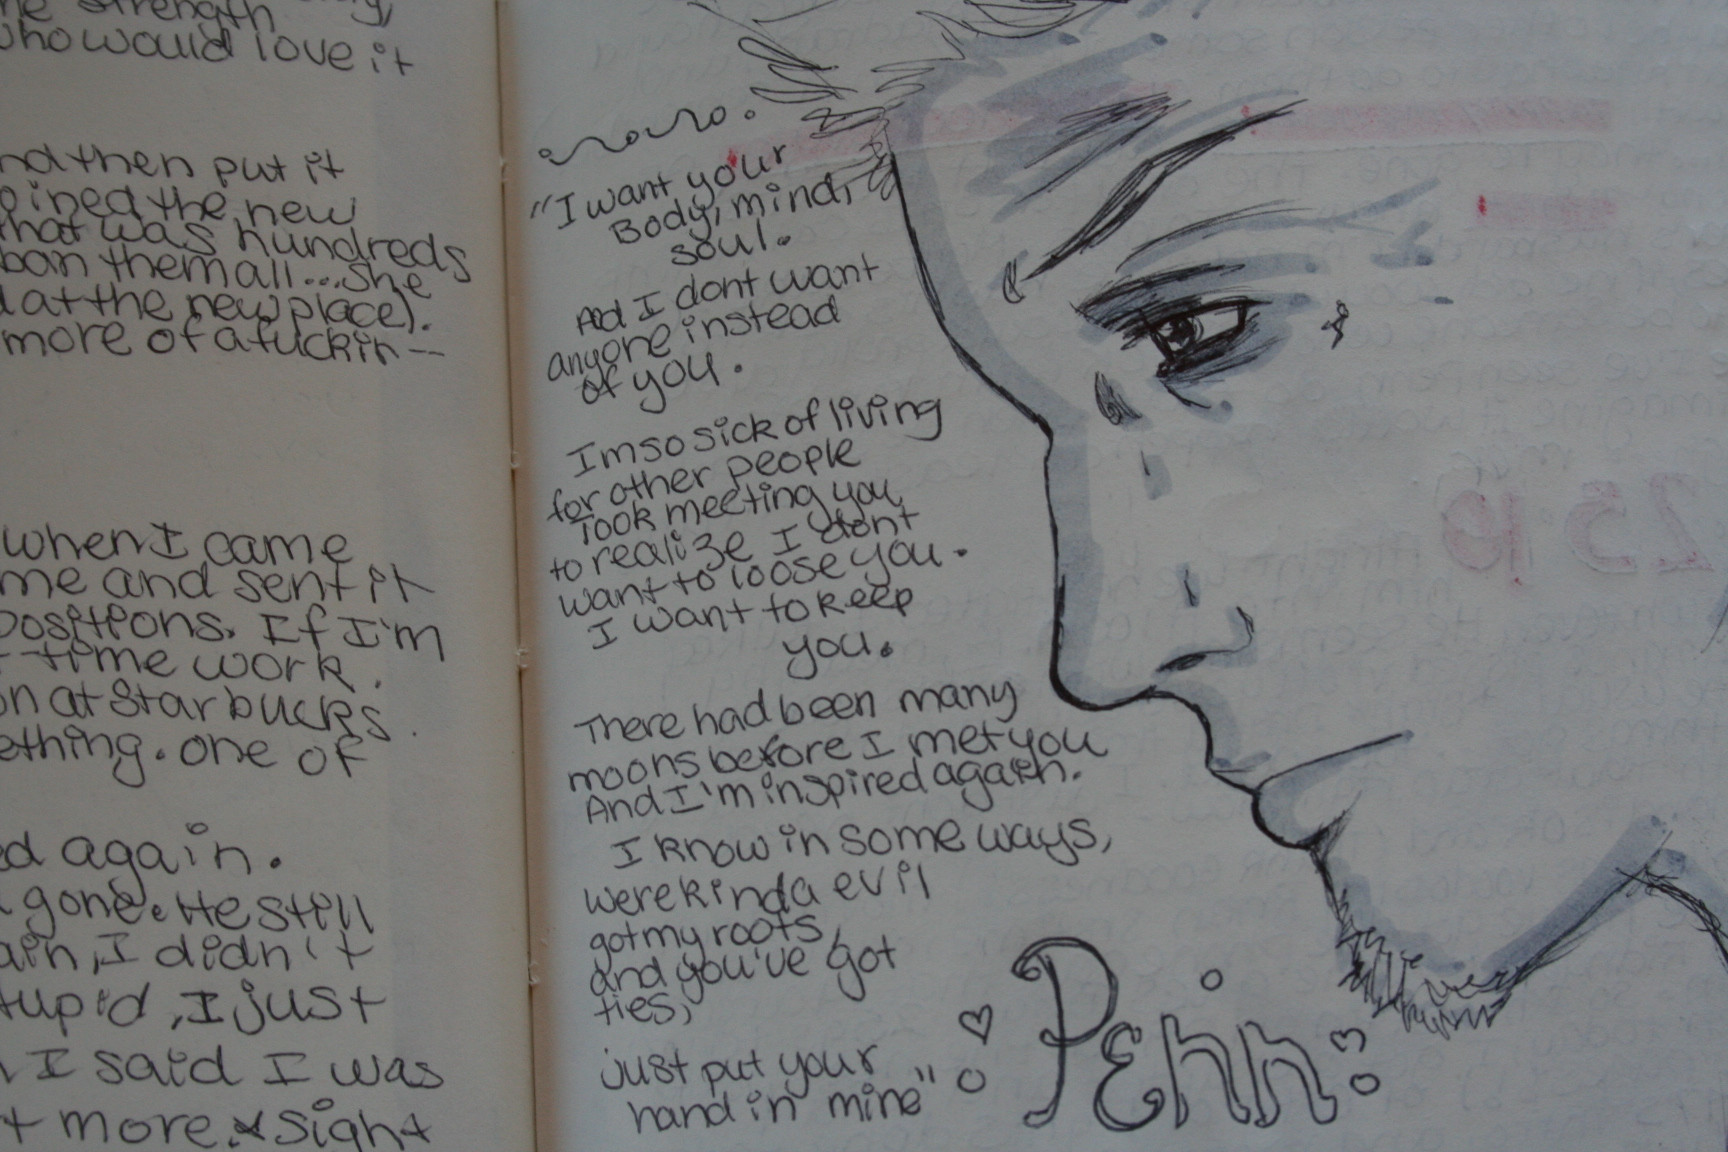 strength
who would love it
nd then put it
oined the new
that was hundreds
ban them all...she
d at the new place).
more of a fuckin--
when I came
me and sent it
positions. If I'm
time work.
on at Starbucks.
ething. one of
ed again.
gone. He still
ain, I didn't
tupid, I just
I said I was
t more. sight
"I want your
Body, mind,
soul.
And I dont want
anyone instead
of you.
Im so sick of living
for other people
Took meeting you
to realize I dont
want to loose you.
I want to keep
you.
There had been many
moons before I met you
And I'm inspired again.
I know in some ways,
were kinda evil
got my roots,
and you've got
ties,
just put your
hand in mine"
Penn
25.10